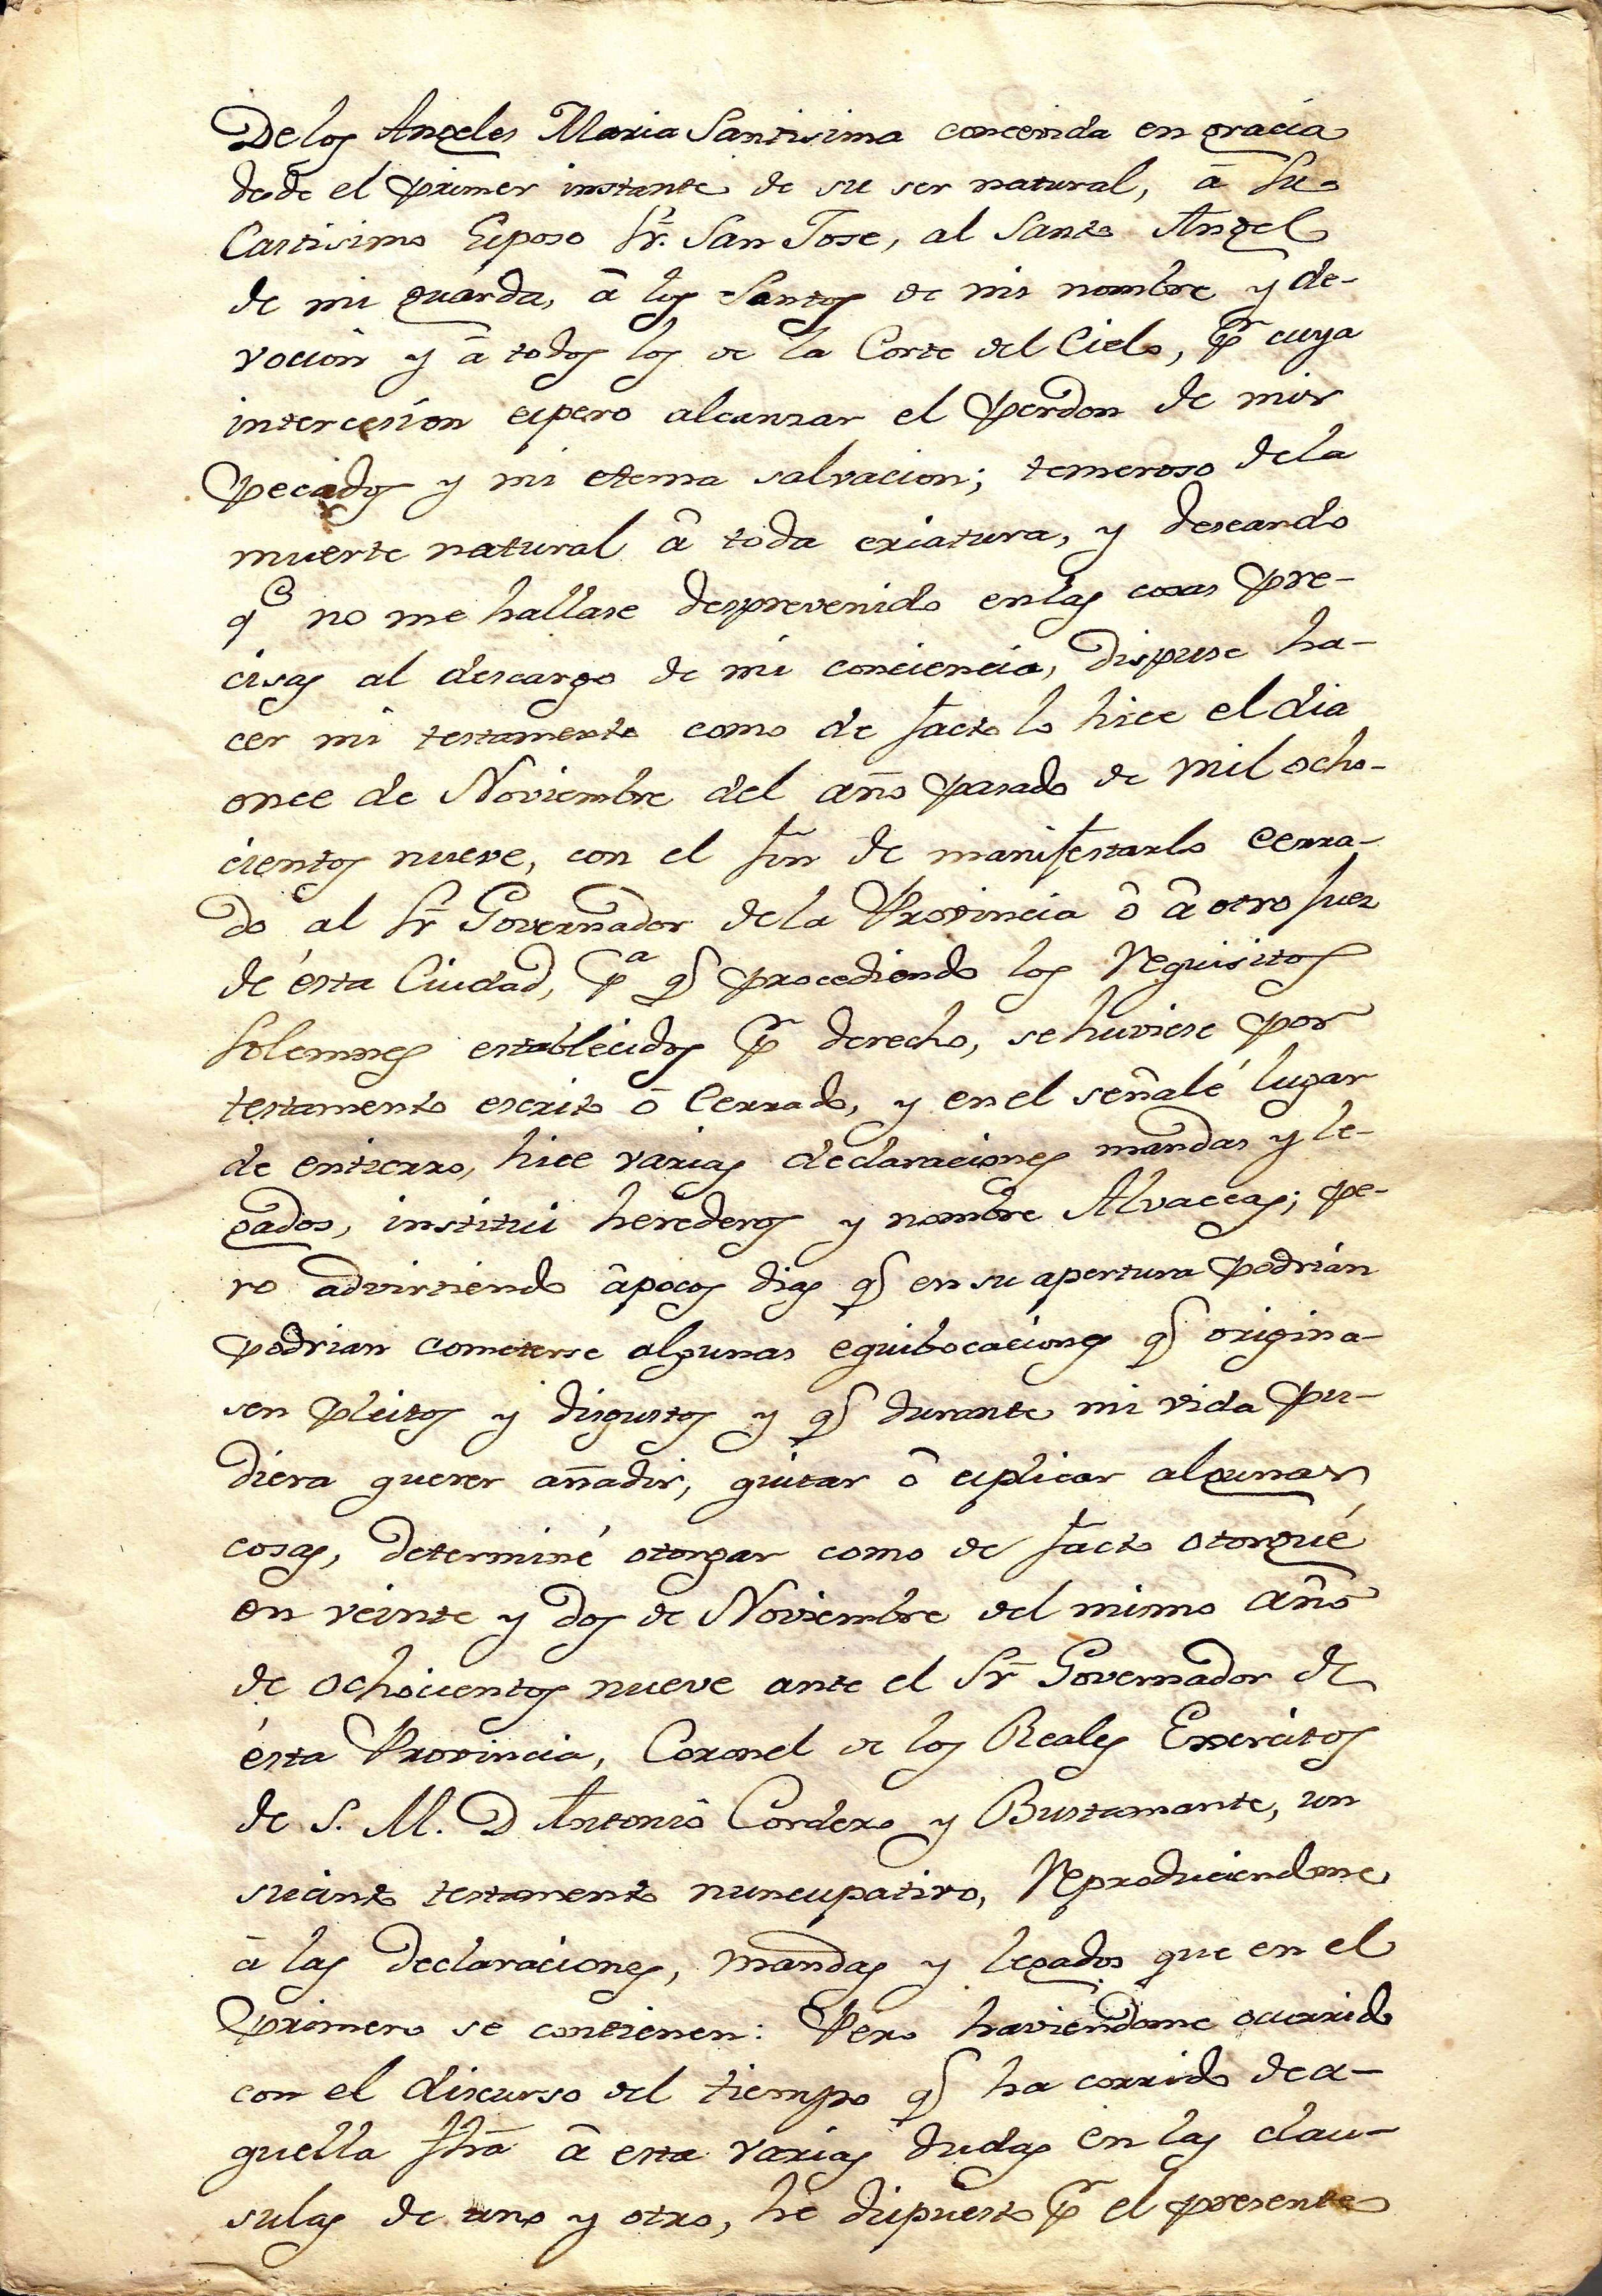 De los Angeles Maria Santisima concevida en gracia
desde el primer instante de su ser natural, â su
Castisimo Esposo Sr. San Jose, al Santo Angel
de mi guarda, â los Santos de mi nombre y de-
vocion y â todos los de la Corte del Cielo, pr cuya
intercesion espero alcanzar el perdon de mis
pecados y mi eterna salvacion; temeroso dela
muerte natural â toda criatura, y deseando
qe no me hallase desprevenido enlas cosas pre-
cisas al descargo de mi conciencia, dispuse ha-
cer mi testamento como de facto lo hice el dia
once de Noviembre del año pasado de mil ocho-
cientos nueve, con el fin de manifestarlo cerra-
do al Sr Governador dela Provincia ô â otro Juez
de ésta Ciudad, pa q procediendo los Requisitos
solemnes establecidos pr derecho, se huviese por
testamento escrito ô Cerrado, y en el señalé lugar
de entierro, hice varias declaraciones mandas y le-
gados, institui herederos y nombre Alvaceas; pe-
ro advirtiendo âpocos dias q en su apertura podrian
podrian cometerse algunas equibocaciones q origina-
sen pleitos y disgustos y q durante mi vida pu-
diera querer añadir, quitar ô esplicar algunas
cosas, determiné otorgar como de facto otorgué
en veinte y dos de Noviembre del mismo año
de ochocientos nueve ante el Sr Governador de
ésta Provincia, Coronel de los Reales Exercitos
de S. M. D Antonio Cordero y Bustamante, un
sucinto testamento nuncupativo, Reproduciendome
â las declaraciones, mandas y legados que en el
primero se contienen: Pero haviendome ocurrido
con el discurso del tiempo q ha corrido dea-
quella fhã â esta varias dudas en las clau-
sulas de uno y otro, he dispuesto pr el presente